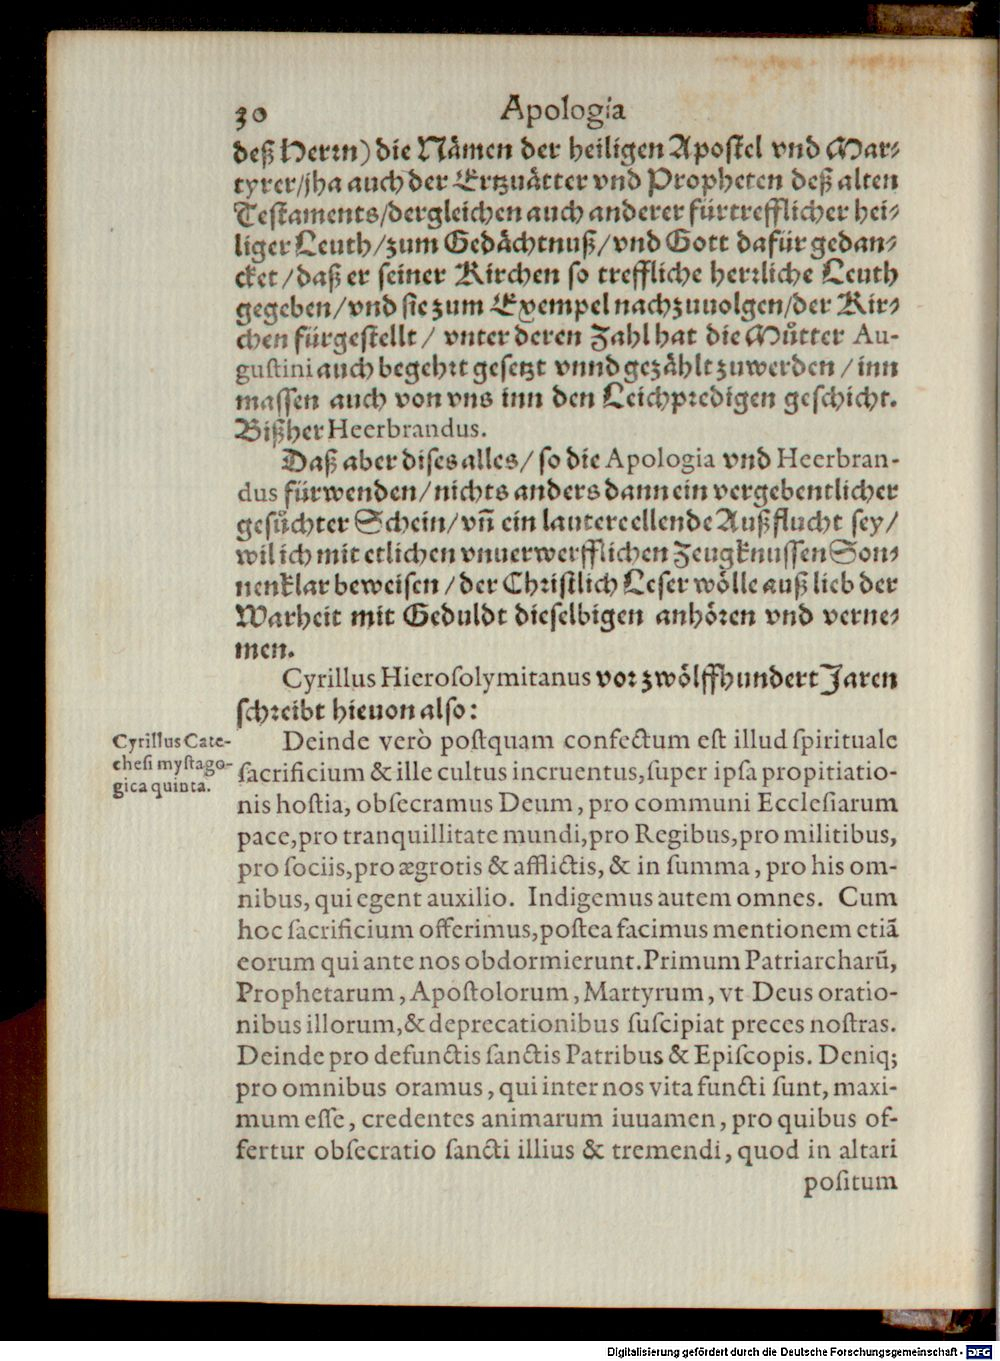 30 Apologia
deß Herrn) die Nämen der heiligen Apostel vnd Mar⸗
tyrer/jha auch der Ertzuätter vnd Propheten deß alten
Testaments/dergleichen auch anderer fürtrefflicher hei⸗
liger Leuth/zum Gedächtnuß/vnd Gott dafür gedan⸗
cket/daß er seiner Kirchen so treffliche herrliche Leuth
gegeben/vnd sie zum Exempel nachzuuolgen/der Kir⸗
chen fürgestellt/ vnter deren Zahl hat die Muͦtter Au-
gustini auch begehrt gesetzt vnnd gezählt zuwerden/inn
massen auch von vns inn den Leichpredigen geschicht.
Bißher Heerbrandus.
Daß aber dises alles/ so die Apologia vnd Heerbran-
dus fürwenden/nichts anders dann ein vergebentlicher
gesuͦchter Schein/vñ ein lautere ellende Außflucht sey/
wil ich mit etlichen vnuerwerfflichen Zeugknussen Son⸗
nenklar beweisen/der Christlich Leser wölle auß lieb der
Warheit mit Geduldt dieselbigen anhören vnd verne⸗
men.
Cyrillus Hierosolymitanus vor zwölffhundert Jaren
schreibt hieuon also:
Cyrillus Cate-
chesi mystago-
gica quinta.
Deinde verò postquam confectum est illud spirituale
sacrificium & ille cultus incruentus, super ipsa propitiatio-
nis hostia, obsecramus Deum, pro communi Ecclesiarum
pace, pro tranquillitate mundi, pro Regibus, pro militibus,
pro sociis, pro ægrotis & afflictis, & in summa, pro his om-
nibus, qui egent auxilio. Indigemus autem omnes. Cum
hoc sacrificium offerimus, postea facimus mentionem etiã
eorum qui ante nos obdormierunt. Primum Patriarcharũ,
Prophetarum, Apostolorum, Martyrum, vt Deus oratio-
nibus illorum, & deprecationibus suscipiat preces nostras.
Deinde pro defunctis sanctis Patribus & Episcopis. Deniq;
pro omnibus oramus, qui inter nos vita functi sunt, maxi-
mum esse, credentes animarum iuuamen, pro quibus of-
fertur obsecratio sancti illius & tremendi, quod in altari
positum
Digitalisierung gefördert durch die Deutsche Forschungsgemeinschaft - DFG